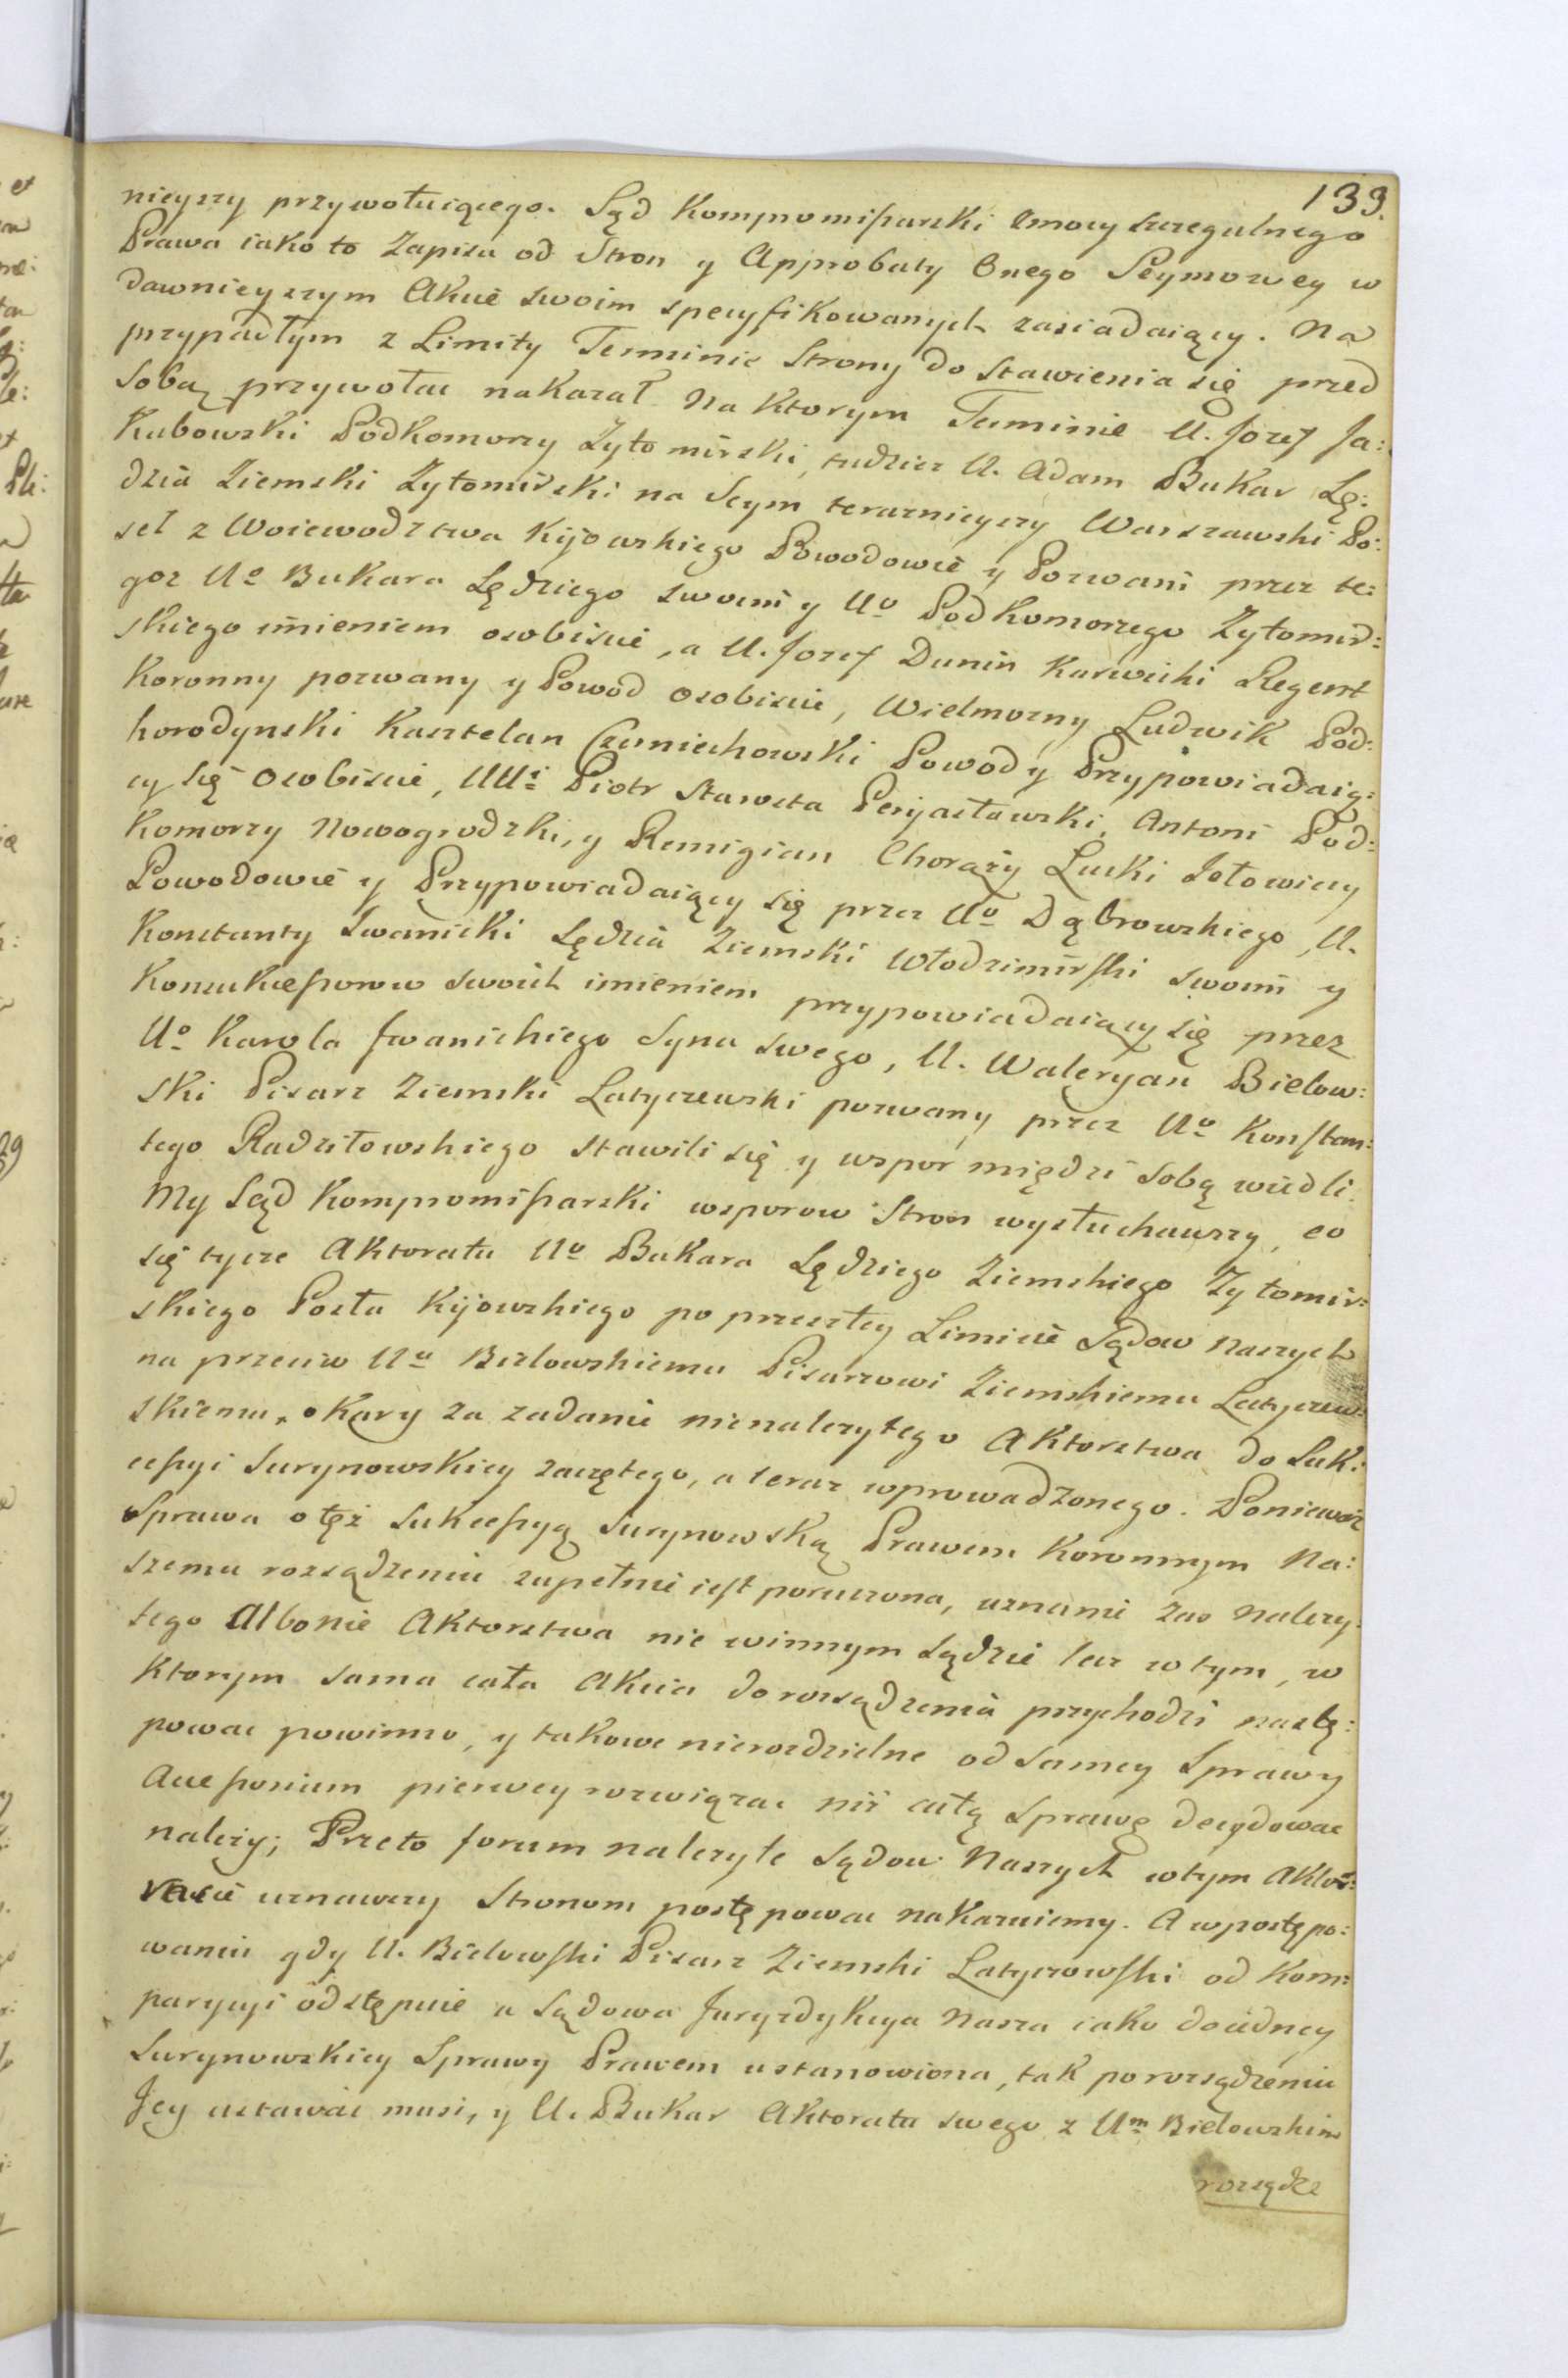 139.
nieyszy przywołuiącego. Sąd Kompromissarski zmocy szczegulnego
Prawa iako to Zapisu od Stron y Approbaty Onego Seymowey w
dawnieyszym Akcie swoim specyfikowanych zasiadaiący. Na
przypadłym z Limity Terminie Strony do stawienia się przed
sobą przywołac nakazał. Na ktorym Terminie U. Jozef Ja:
kubowski Podkomorzy Zytomirski, tudziez U. Adam Bukar Sę:
dzia Ziemski Zytomirski na Seym teraznieyszy Warszawski Po:
seł z Woiewodztwa Kijowskiego Powodowie y Pozwani przez te:
goz Uo Bukara Sędziego swoim y Uo Podkomorzego Zytomir:
skiego imieniem osobiscie, a U. Jozef Dunin Karwicki Regent
Koronny pozwany y Powod osobiscie, Wielmozny Ludwik Pod:
horodynski Kasztelan Czerniechowski Powod y Przypowiadaią:
cy się osobiscie, UUi Piotr Starosta Perijasławski, Antoni Pod:
komorzy Nowogrodzki, y Remigian Chorąży Łucki Jełowiccy
Powodowie y Przypowiadaiący się przez Uo Dąbrowskiego, U.
Konstanty Iwanicki Sędzia Ziemski Włodzimirski swoim y
Konsukcessorow swoich imieniem przypowiadaiący się przez
Uo Karola Iwanickiego Syna swego, U. Waleryan Bielow:
ski Pisarz Ziemski Latyczewski pozwany przez Uo Konstan:
tego Radziłowskiego stawili się y wspor między sobą wiedli.
My Sąd Kompromissarski wsporow Stron wysłuchawszy, co
się tycze Aktoratu Uo Bukara Sędziego Ziemskiego Zytomir:
skiego Posła Kijowskiego po przeszłey Limicie Sądow Naszych
na przeciw Uu Bielowskiemu Pisarzowi Ziemskiemu Latyczew:
skiemu, o kary za zadanie nienalezytego Aktorstwa do Suk:
cessyi Surynowskiey zaczętego, a teraz wprowadzonego. Ponieważ
Sprawa o tęż Sukcessyą Surynowską Prawem Koronnym Na:
szemu rozsądzeniu zupełnie iest poruczona, uznanie zas nalezy:
tego Albonie Aktorstwa nie winnym Sądzie lecz w tym, w
ktorym sama cała Akcia do rozsądzenia przychodzi nastę:
powac powinno, y takowe nierozdzielne od samey Sprawy
Accessorium pierwey rozwiązac niż całą sprawę decydowac
należy; Przeto forum nalezyte Sądow Naszych w tym Akto:
racie uznawszy Stronom postępowac nakazuiemy. A w postępo:
waniu gdy U. Bielowski Pisarz Ziemski Latyczowski od Kom:
parycyi odstępuie a Sądowa Juryzdykcya Nasza iako do iedney
Surynowskiey Sprawy Prawem ustanowiona, tak po rozsądzeniu
Jey ustawac musi, y U. Bukar Aktoratu swego z Um Bielowskim
rozsądze